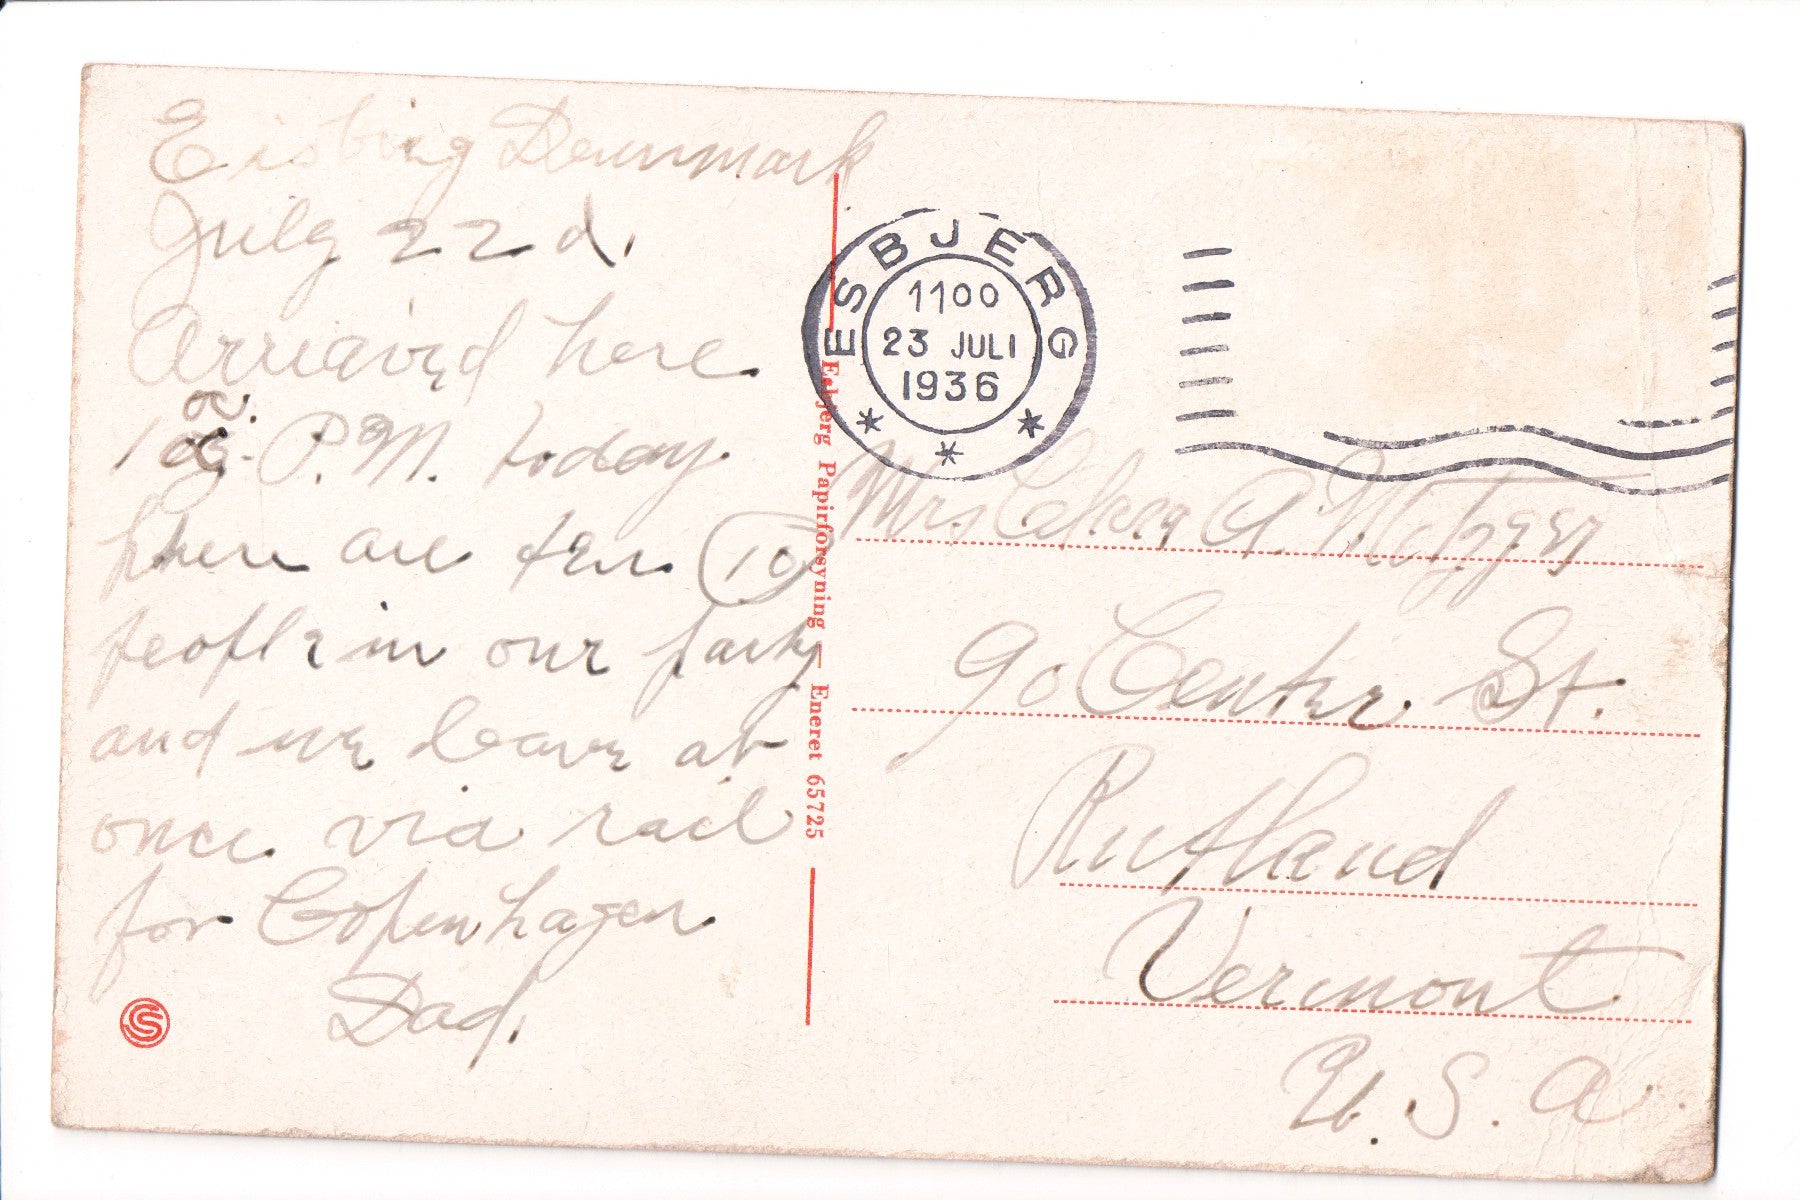 Eisbing Denmark
July 22d.
Arrived here
1 P.M. today.
there are ten (10)
people in our party
and we leave at
once via rail
for Copenhagen
Dad.
ESBJERG
1100
23 JULI
1936
Esbjerg Papirforsyning — Eneret 65725
Mrs Edna A. Metzger
90 Center St.
Rutland
Vermont
U.S.A.
S